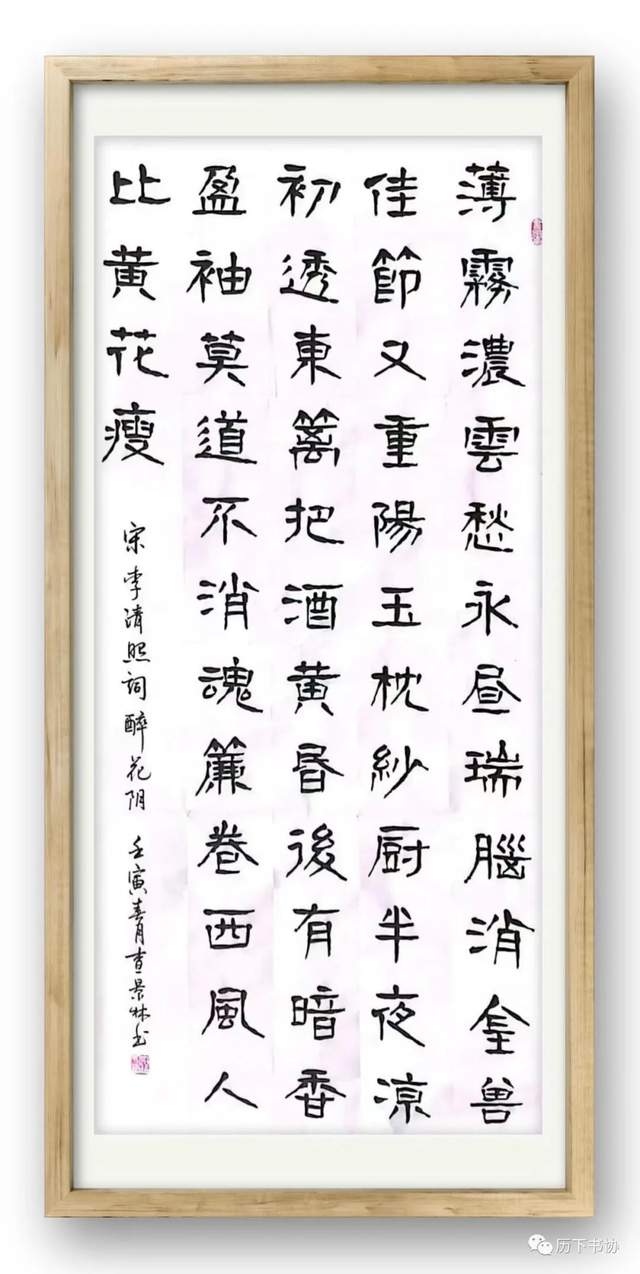 薄霧濃雲愁永昼瑞腦消金兽
佳節又重陽玉枕紗厨半夜凉
初透東篱把酒黄昏後有暗香
盈袖莫道不消魂簾卷西風人
比黄花瘦
宋李清照詞醉花阴 壬寅春月查景林书
历下书协